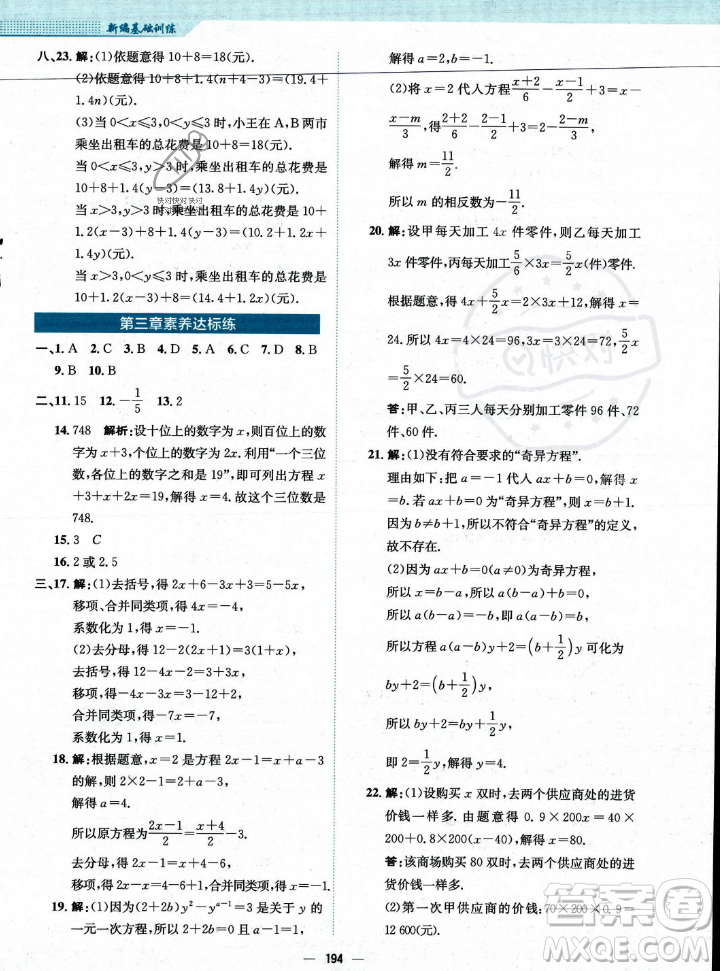 新编基础训练
八、23. 解:(1)依题意得 10+8=18(元).
(2)依题意得 10+8+1.4(n+4-3)=(19.4+
1.4n)(元).
(3)当 0<x≤3,0<y≤3 时,小王在 A,B 两市
乘坐出租车的总花费是 10+8=18(元).
当 0<x≤3,y>3 时,乘坐出租车的总花费是
10+8+1.4(y-3)=(13.8+1.4y)(元).
当 x>3,0<y≤3 时,乘坐出租车的总花费是 10+
1.2(x-3)+8=(14.4+1.2x)(元).
当 x>3,y>3 时,乘坐出租车的总花费是
10+1.2(x-3)+8+1.4(y-3)=(10.2+
1.2x+1.4y)(元).
第三章素养达标练
一、1. A 2. C 3. B 4. D 5. D 6. B 7. D 8. B
9. B 10. B
二、11. 15 12. -1/5 13. 2
14. 748 解析:设十位上的数字为 x,则百位上的数
字为 x+3,个位上的数字为 2x. 根据“一个三位
数,各数位上的数字之和是 19”,即可列方程 x
+3+x+2x=19,解得 x=4. 故这个三位数是
748.
15. 3 C
16. 2 或 2.5
三、17. 解:(1)去括号,得 2x+6-3x+3=5-5x,
移项、合并同类项,得 4x=-4,
系数化为 1,得 x=-1.
(2)去分母,得 12-2(2x+1)=3(1+x),
去括号,得 12-4x-2=3+3x,
移项,得-4x-3x=3-12+2,
合并同类项,得-7x=-7,
系数化为 1,得 x=1.
18. 解:根据题意,x=2 是方程 2x-1=x+a-3
的解,则 2×2-1=2+a-3,
解得 a=4.
所以原方程为(2x-1)/2=(x+4)/2-3.
去分母,得 2x-1=x+4-6,
移项、合并同类项,得 x=-1.
19. 解:(1)因为(a+2)y²-y^(a-1)+1=3 是关于 y 的
一元一次方程,所以 a+2=0,a-1=1,
解得 a=-2.
(2)将 x=2 代入方程(x+2)/6-(x-1)/2+3=x-
(x-m)/3,得(2+2)/6-(2-1)/2+3=2-(2-m)/3,
解得 m=11/2.
所以 m 的相反数为-11/2.
20. 解:设甲每天加工 4x 件零件,则乙每天加工
3x 件零件,丙每天加工 5/6×3x=5/2x(件)零件.
根据题意,得 4x+3x+5/2x=228,解得 x=
24. 所以 4×24=96,3×24=72,
5/2×24=60.
答:甲、乙、丙三人每天分别加工零件 96 件、72
件、60 件.
21. 解:(1)没有符合要求的“奇异方程”.
理由如下:把 a=-1 代入 ax+b=0,解得 x
=b. 若 ax+b=0 为“奇异方程”,则 x=b+1.
因为 b≠b+1,所以不符合“奇异方程”的定义,
故不存在.
(2)因为 ax+b=0(a≠0)为“奇异方程”,
所以 x=b-a,所以 a(b-a)+b=0,
所以 a(b-a)=-b,所以 a(a-b)=b.
所以方程 a(a-b)y+2=(b+1/2)y 可化为
by+2=(b+1/2)y,
所以 by+2=by+1/2y,
即 2=1/2y,解得 y=4.
22. 解:(1)设购买 x 双时,去两个供应商处的进货
价钱一样多. 由题意得 0.9×200x=70×
200+0.8×200(x-70),解得 x=80.
答:该商场购买 80 双时,去两个供应商处的进
货价钱一样多.
(2)第一次甲供应商的价钱:70×200×0.9=
12 600(元).
194
快对快对快对
快对
答案圈
MXQE.COM